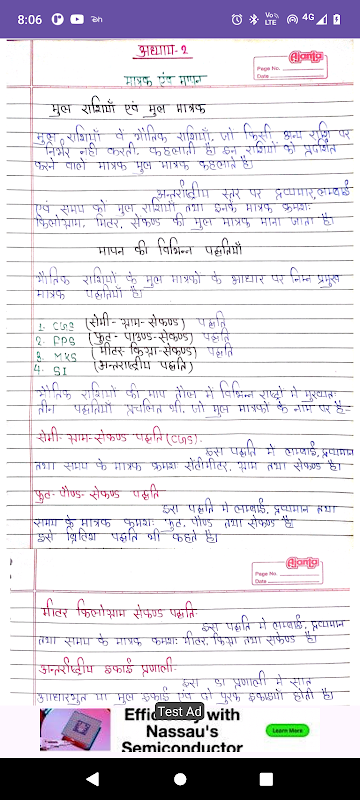 8:06
4G
अध्याय-2
Ajanta
Page No.
Date
मात्रक एंव मापन
मुल राशियाँ एवं मुल मात्रक
मुल राशियाँ वे भौतिक राशियाँ, जो किसी अन्य राशि पर
निर्भर नही करती, कहलाती है। इन राशियों को प्रदर्शित
करने वाले मात्रक मुल मात्रक कहलाते है।
अन्तर्राष्ट्रीय स्तर पर द्रव्यमान, लम्बाई
एवं समय को मुल राशियाँ तथा इनके मात्रक क्रमशः
किलोग्राम, मिटर, सेकण्ड की मुल मात्रक माना जाता है।
मापन की विभिन्न पद्धतियाँ
भौतिक राशियों के मुल मात्रकों के आधार पर निम्न प्रमुख
मात्रक पद्धतियाँ है।
1. CGS (सेमी-ग्राम-सेकण्ड) पद्धति
2. FPS (फुट-पाउण्ड-सेकण्ड) पद्धति
3. MKS (मीटर-किग्रा-सेकण्ड) पद्धति
4. SI (अन्तराष्ट्रीय पद्धति)
भौतिक राशियों की माप तौल में विभिन्न राष्ट्रो में मुख्यतः
तीन पद्धतियाँ प्रचलित थी, जो मुल मात्रकों के नाम पर है-
सेमी-ग्राम-सेकण्ड पद्धति (CGS)-
इस पद्धति मे लम्बाई, द्रव्यमान
तथा समय के मात्रक क्रमश सेंटीमीटर, ग्राम तथा सेकण्ड है।
फुट-पौण्ड-सेकण्ड पद्धति
इस पद्धति मे लम्बाई, द्रव्यमान तथा
समय के मात्रक क्रमशः फुट, पौण्ड तथा सेकण्ड है।
इसे ब्रिटिश पद्धति भी कहते है।
Ajanta
Page No.
Date
मीटर किलोग्राम सेकण्ड पद्धति-
इस पद्धति में लम्बाई, द्रव्यमान
तथा समय के मात्रक क्रमशः मीटर, किग्रा तथा सकेण्ड है।
अन्तर्राष्ट्रीय इकाई प्रणाली-
इस प्रणाली में सात
आधारभुत या मुल इकाई एंव दो पुरक इकाइयाँ होती है।
Efficiency with
Nassau's
Semiconductor
Test Ad
Learn More